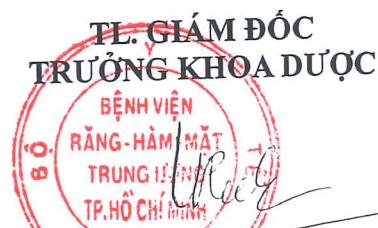 TL. GIÁM ĐỐC
TRƯỞNG KHOA DƯỢC
BỆNH VIỆN
RĂNG-HÀM MẶT
TRUNG ƯƠNG
TP.HỒ CHÍ MINH
BỘ